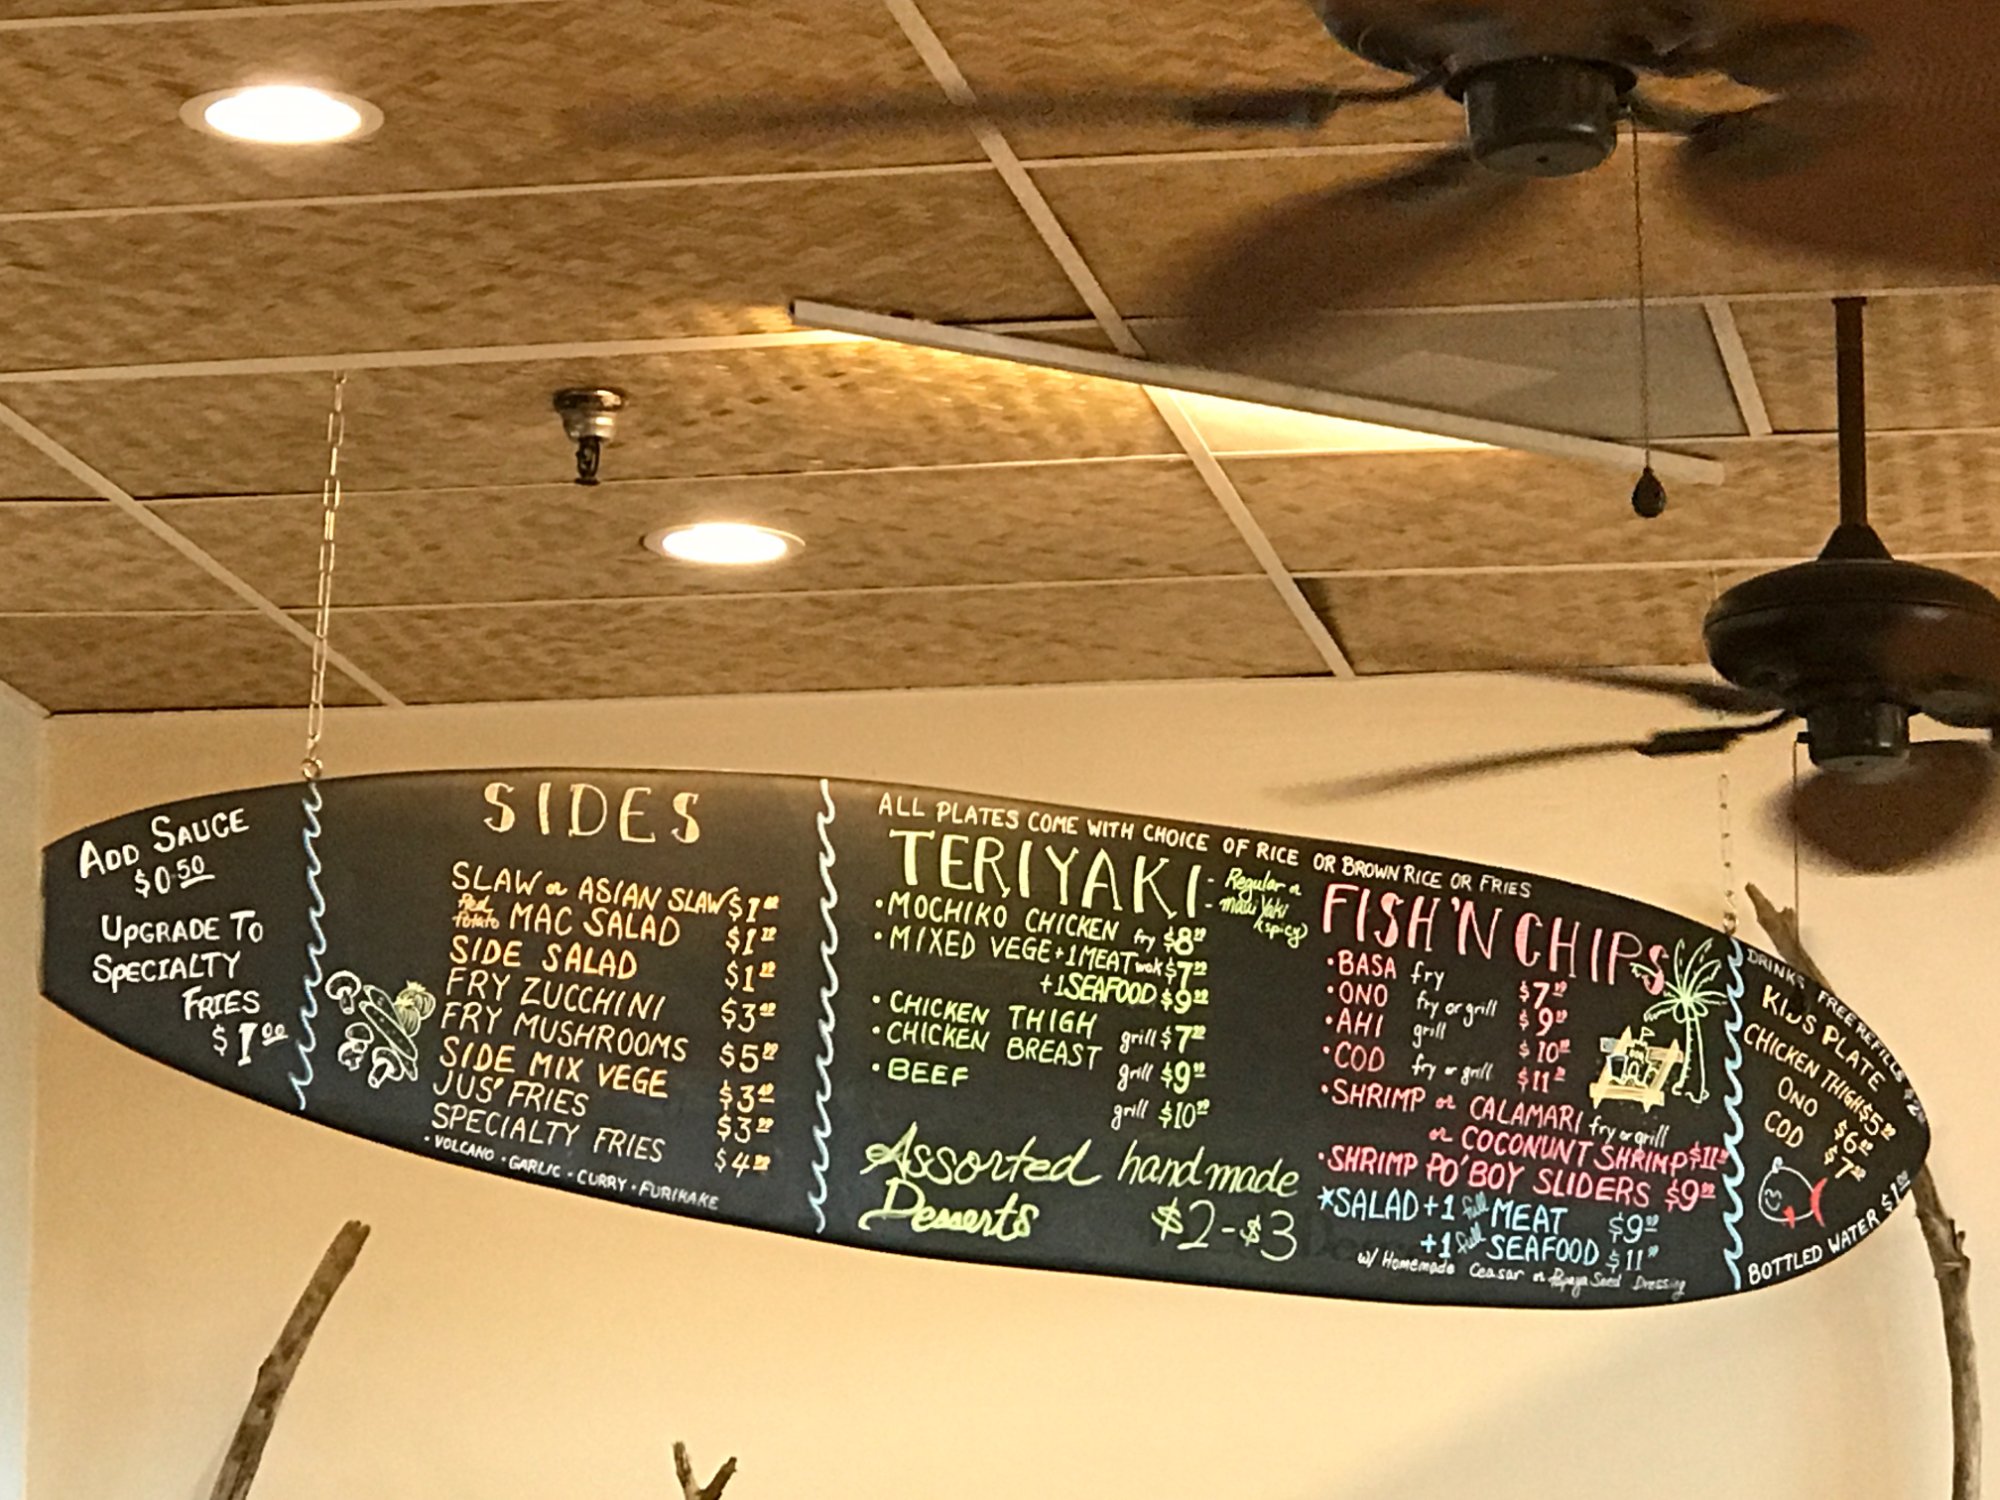 ADD SAUCE
$0.50
UPGRADE TO
SPECIALTY
FRIES
$1.00
SIDES
SLAW or ASIAN SLAW $1
Red Potato MAC SALAD $1
SIDE SALAD $1
FRY ZUCCHINI $3
FRY MUSHROOMS $5
SIDE MIX VEGE $3
JUS' FRIES $3
SPECIALTY FRIES $4
• VOLCANO • GARLIC • CURRY • FURIKAKE
ALL PLATES COME WITH CHOICE OF RICE OR BROWN RICE OR FRIES
TERIYAKI - Regular or
- Maui Yaki
(spicy)
• MOCHIKO CHICKEN fry $8
• MIXED VEGE +1 MEAT wok $7
+1 SEAFOOD $9
• CHICKEN THIGH grill $7
• CHICKEN BREAST grill $9
• BEEF grill $10
Assorted handmade
Desserts $2-$3
FISH 'N CHIPS
• BASA fry $7
• ONO fry or grill $9
• AHI grill $10
• COD fry or grill $11
• SHRIMP or CALAMARI fry or grill
or COCONUNT SHRIMP $11
• SHRIMP PO'BOY SLIDERS $9
*SALAD +1 full MEAT $9
+1 full SEAFOOD $11
w/ Homemade Ceasar or Papaya Seed Dressing
DRINKS FREE REFILLS $2
KIDS PLATE
CHICKEN THIGH $5
ONO $6
COD $7
BOTTLED WATER $1